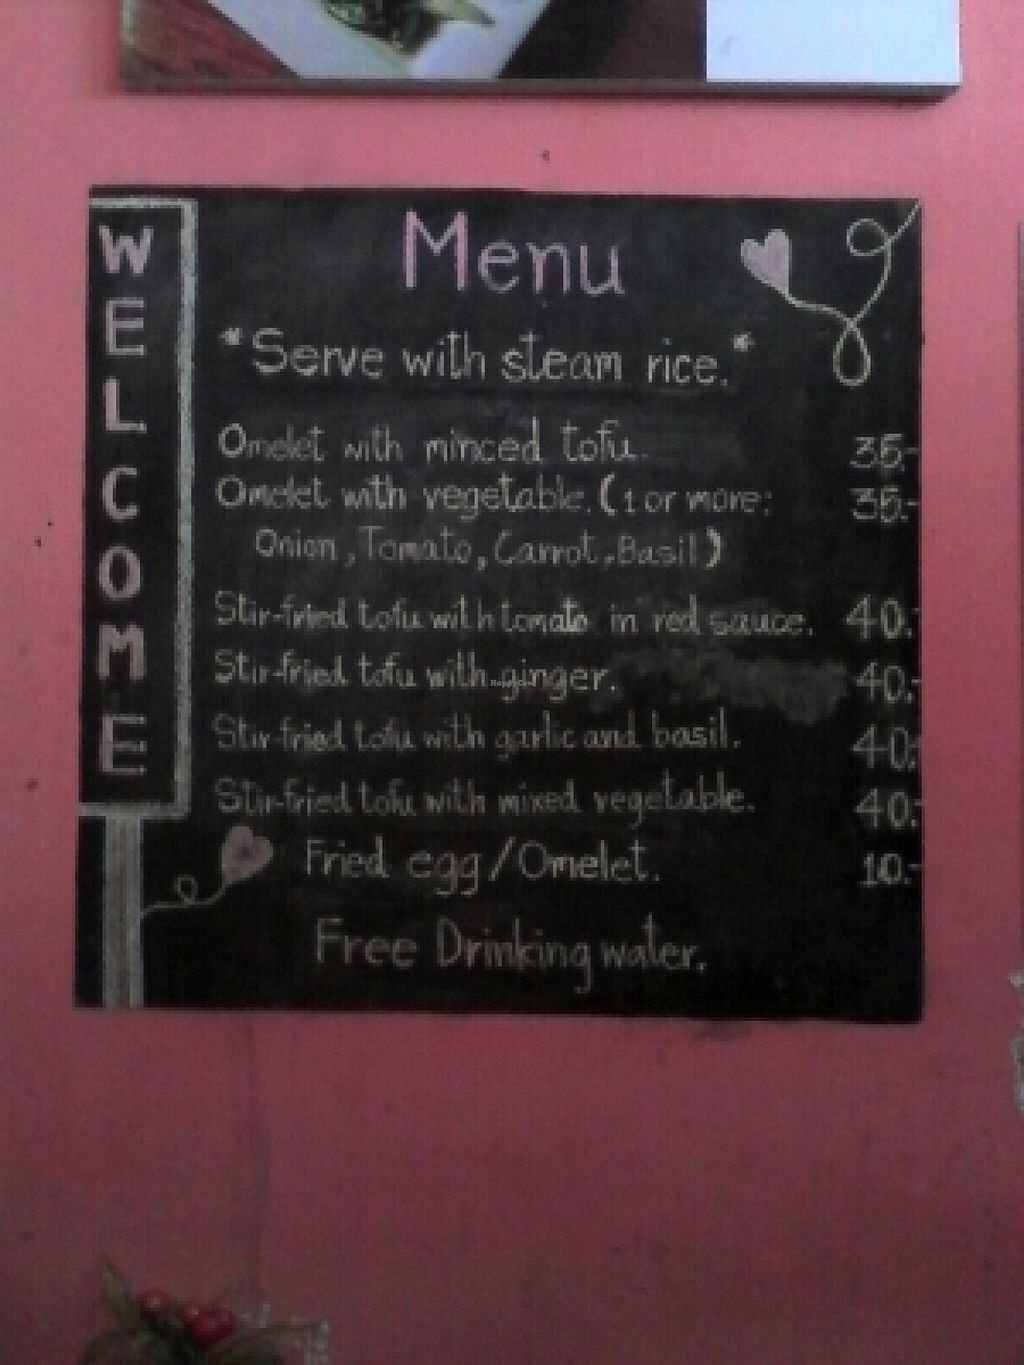 WELCOME
Menu
*Serve with steam rice.*
Omelet with minced tofu. 35.-
Omelet with vegetable. (1 or more: 35.-
Onion, Tomato, Carrot, Basil)
Stir-fried tofu with tomato in red sauce. 40.-
Stir-fried tofu with ginger. 40.-
Stir-fried tofu with garlic and basil. 40.-
Stir-fried tofu with mixed vegetable. 40.-
Fried egg/Omelet. 10.-
Free Drinking water.
HappyCow